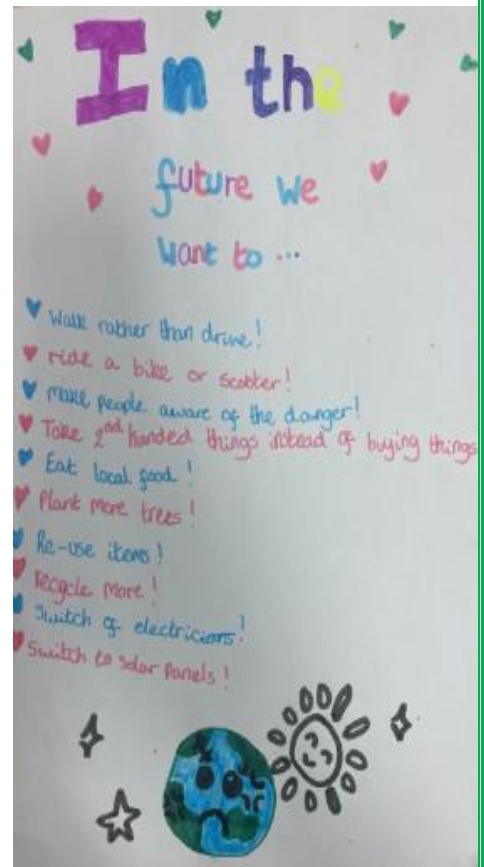 In the
future we
want to ...
Walk rather than drive!
ride a bike or scooter!
Make people aware of the danger!
Take 2nd handed things intead of buying things
Eat local food!
Plant More trees!
Re-use items!
Recycle More!
Switch of electricians!
Switch to solar panels!